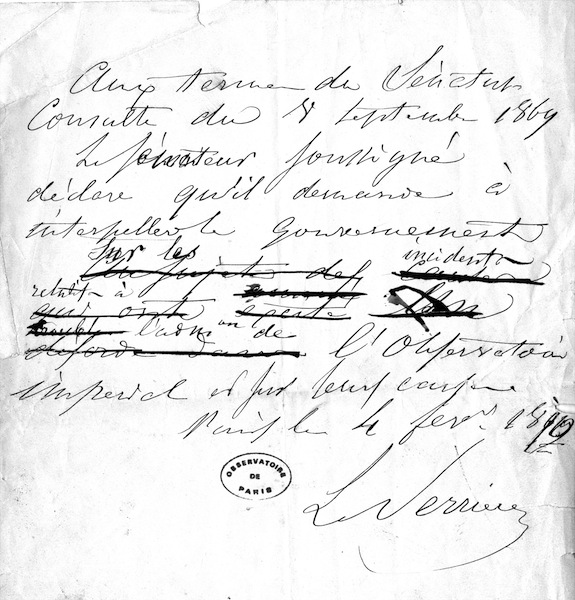 Aux termes du Sénatus
Consulte du 8 Septembre 1869
Le sénateur soussigné
déclare qu'il demande à
interpeller le Gouvernement
sur les incidents
au sujet des
relatifs à
qui ont
l'adm on de
désordre dans l'Observatoire
impérial et sur leurs causes
Paris le 4 fevr. 1870
OBSERVATOIRE
DE
PARIS
Le Verrier